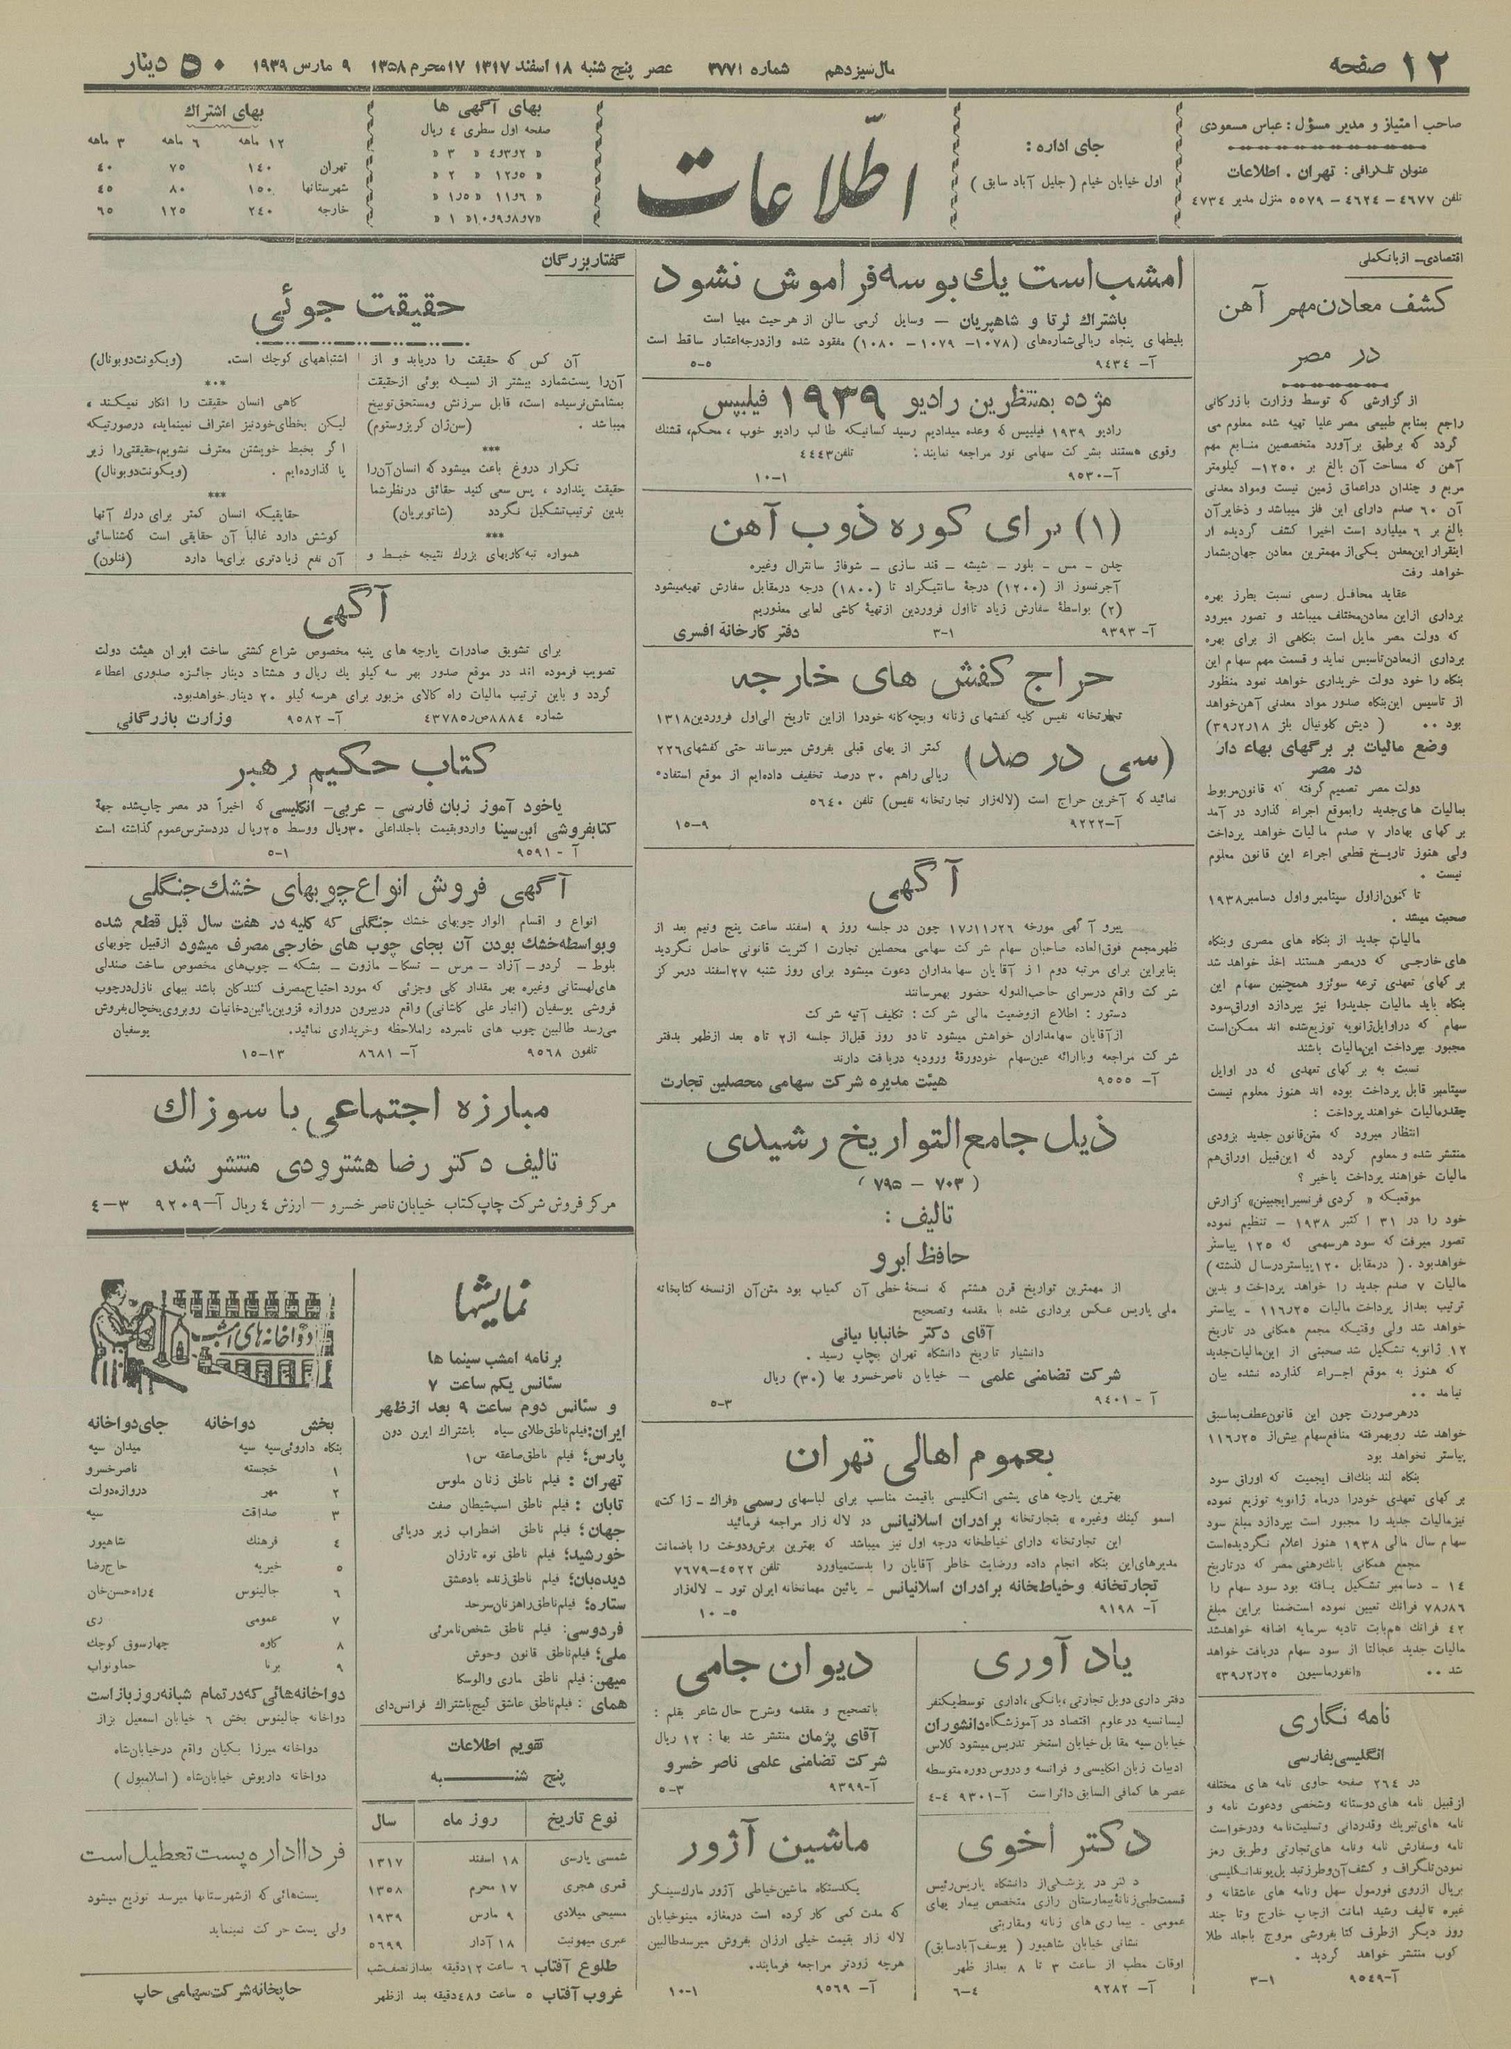 ۱۲ صفحه
سال سیزدهم
شماره ۳۷۷۱
عصر پنج شنبه ۱۸ اسفند ۱۳۱۷
۱۷ محرم ۱۳۵۸
۹ مارس ۱۹۳۹
۵۰ دینار
صاحب امتیاز و مدیر مسؤل: عباس مسعودی
عنوان تلگرافی: تهران . اطلاعات
تلفن ۴۶۷۷ – ۴۶۲۴ – ۵۵۷۹ منزل مدیر ۴۷۳۴
جای اداره :
اول خیابان خیام ( جلیل آباد سابق )
اطّلاعات
بهای آگهی ها
صفحه اول سطری ۴ ریال
« ۲و۳و۴ « ۳ «
« ۵و۱۲ « ۲ «
« ۶و۱۱ « ۱٫۵ «
«۷و۸و۹و۱۰« ۱ «
بهای اشتراك
۱۲ ماهه ۶ ماهه ۳ ماهه
تهران ۱۴۰ ۷۵ ۴۰
شهرستانها ۱۵۰ ۸۰ ۴۵
خارجه ۲۴۰ ۱۲۵ ۶۵
اقتصادی– ازبانکملی
کشف معادن مهم آهن
در مصر
از گزارشی که توسط وزارت بازرگانی
راجع بمنابع طبیعی مصر علیا تهیه شده معلوم می
گردد که برطبق برآورد متخصصین منابع مهم
آهن که مساحت آن بالغ بر ۱۲۵۰– کیلومتر
مربع و چندان دراعماق زمین نیست ومواد معدنی
آن ۶۰ صدم دارای این فلز میباشد و ذخایرآن
بالغ بر ۶ میلیارد است اخیراً کشف گردیده از
اینقرار این معدن یکی از مهمترین معادن جهان بشمار
خواهد رفت
عقاید محافل رسمی نسبت بطرز بهره
برداری ازاین معادن مختلف میباشد و تصور میرود
که دولت مصر مایل است بنگاهی از برای بهره
برداری ازمعادن تاسیس نماید و قسمت مهم سهام این
بنگاه را خود دولت خریداری خواهد نمود منظور
از تاسیس این بنگاه صدور مواد معدنی آهن خواهد
بود .. ( دیش کلونیال بلژ ۳۹٫۲٫۱۸)
وضع مالیات بر برگهای بهاء دار
در مصر
دولت مصر تصمیم گرفته که قانون مربوط
بمالیات های جدید را بموقع اجراء گذارد در آمد
برگهای بهادار ۷ صدم مالیات خواهد پرداخت
ولی هنوز تاریخ قطعی اجراء این قانون معلوم
نیست .
تا کنون ازاول سپتامبر واول دسامبر ۱۹۳۸
صحبت میشد .
مالیات جدید از بنگاه های مصری وبنگاه
های خارجی که درمصر هستند اخذ خواهد شد
برگهای تعهدی ترعه سوئزو همچنین سهام این
بنگاه باید مالیات جدید را نیز بپردازد اوراق سود
سهام که دراوایل ژانویه توزیع شده اند ممکن است
مجبور بپرداخت این مالیات باشند
نسبت به برگهای تعهدی که در اوایل
سپتامبر قابل پرداخت بوده اند هنوز معلوم نیست
چقدر مالیات خواهند پرداخت :
انتظار میرود که متن قانون جدید بزودی
منتشر شده و معلوم گردد که این قبیل اوراق هم
مالیات خواهند پرداخت یا خیر ؟
موقعیکه « کردی فرنسیرایجیپسن» گزارش
خود را در ۳۱ اکتبر ۱۹۳۸ – تنظیم نموده
تصور میرفت که سود هرسهمی که ۱۲۵ پیاستر
خواهدبود . ( درمقابل ۱۲۰پیاستر درسال گذشته)
مالیات ۷ صدم جدید را خواهد پرداخت و بدین
ترتیب بعداز پرداخت مالیات ۱۱۶٫۲۵ – پیاستر
خواهد شد ولی وقتیکه مجمع همگانی در تاریخ
۱۲ ژانویه تشکیل شد صحبتی از این مالیات جدید
که هنوز به موقع اجراء گذارده نشده بیان
نیامد ..
درهرصورت چون این قانون عطف بماسبق
خواهد شد رویهمرفته منافع سهام بیش از ۱۱۶٫۲۵
پیاستر نخواهد بود
بنگاه لند بنك اف ایجیپت که اوراق سود
برگهای تعهدی خودرا درماه ژانویه توزیع نموده
نیز مالیات جدید را مجبور است بپردازد مبلغ سود
سهام سال مالی ۱۹۳۸ هنوز اعلام نگردیده است
مجمع همگانی بانك رهنی مصر که درتاریخ
۱۴ – دسامبر تشکیل یافته بود سود سهام را
۷۸٫۸۶ فرانك تعیین نموده است ضمناً براین مبلغ
۴۲ فرانك هم بابت تادیه سرمایه اضافه خواهدشد
مالیات جدید عجالتاً از سود سهام دریافت خواهد
شد .. «انفورماسیون ۳۹٫۲٫۲۵»
نامه نگاری
انگلیسی بفارسی
در ۲۶۴ صفحه حاوی نامه های مختلفه
از قبیل نامه های دوستانه وشخصی ودعوت نامه و
نامه های تبریك وقدردانی و تسلیت نامه ودرخواست
نامه وسفارش نامه و نامه های تجارتی وطریق رمز
نمودن تلگراف و کشف آن و طرز تبدیل پوند انگلیسی
بریال ازروی فورمول سهل ونامه های عاشقانه و
غیره تالیف رشید امانت ازچاپ خارج وتا چند
روز دیگر ازطرف کتابفروشی مروج باجلد طلا
کوب منتشر خواهد گردید .
آ–۹۵۴۹ ۳–۱
امشب است یك بوسه فراموش نشود
باشتراك لرتا و شاهپریان – وسایل گرمی سالن از هر حیث مهیا است
بلیطهای پنجاه ریالی شماره های (۱۰۷۸– ۱۰۷۹ – ۱۰۸۰) مفقود شده وازدرجه اعتبار ساقط است
آ– ۹۴۳۴ ۵–۵
مژده بمنتظرین رادیو ۱۹۳۹ فیلیپس
رادیو ۱۹۳۹ فیلیپس که وعده میدادیم رسید کسانیکه طالب رادیو خوب ، محکم، قشنگ
وقوی هستند بشرکت سهامی نور مراجعه نمایند : تلفن ۴۴۴۳
آ–۹۵۳۰ ۱۰–۱
(۱) برای کوره ذوب آهن
چدن – مس – بلور – شیشه – قند سازی – شوفاژ سانترال وغیره
آجرنسوز از (۱۲۰۰) درجهٔ سانتیگراد تا (۱۸۰۰) درجه درمقابل سفارش تهیه میشود
(۲) بواسطهٔ سفارش زیاد تااول فروردین ازتهیهٔ کاشی لعابی معذوریم
آ– ۹۳۹۳ ۳–۱ دفتر کارخانه افسری
حراج کفش های خارجه
تجارتخانه نفیس کلیه کفشهای زنانه وبچه گانه خودرا ازاین تاریخ الی اول فروردین ۱۳۱۸
(سی در صد)
کمتر از بهای قبلی بفروش میرساند حتی کفشهای ۲۲۶
ریالی راهم ۳۰ درصد تخفیف داده ایم از موقع استفاده
نمائید که آخرین حراج است (لاله زار تجارتخانه نفیس) تلفن ۵۶۴۰
آ–۹۲۲۲ ۱۵–۹
آگهی
پیرو آگهی مورخه ۱۷٫۱۱٫۲۶ چون در جلسه روز ۹ اسفند ساعت پنج ونیم بعد از
ظهر مجمع فوق العاده صاحبان سهام شرکت سهامی محصلین تجارت اکثریت قانونی حاصل نگردید
بنابراین برای مرتبه دوم از آقایان سهامداران دعوت میشود برای روز شنبه ۲۷ اسفند درمرکز
شرکت واقع درسرای حاجب الدوله حضور بهمرسانند
دستور : اطلاع ازوضعیت مالی شرکت : تکلیف آتیه شرکت
ازآقایان سهامداران خواهش میشود تادو روز قبل از جلسه از۲ تا۵ بعد ازظهر بدفتر
شرکت مراجعه وباارائه عین سهام خودورقهٔ ورودیه دریافت دارند
آ– ۹۵۵۵ هیئت مدیره شرکت سهامی محصلین تجارت
ذیل جامع التواریخ رشیدی
(۷۰۳ – ۷۹۵)
تالیف :
حافظ ابرو
از مهمترین تواریخ قرن هشتم که نسخهٔ خطی آن کمیاب بود متن آن ازنسخه کتابخانه
ملی پاریس عکس برداری شده با مقدمه وتصحیح
آقای دکتر خانبابا بیانی
دانشیار تاریخ دانشگاه تهران بچاپ رسید .
شرکت تضامنی علمی – خیابان ناصرخسرو بها (۳۰) ریال
آ – ۹۴۰۱ ۵–۳
بعموم اهالی تهران
بهترین پارچه های پشمی انگلیسی باقیمت مناسب برای لباسهای رسمی «فراك – ژاکت»
اسمو کینك وغیره » بتجارتخانه برادران اسلانیانس در لاله زار مراجعه فرمائید
این تجارتخانه دارای خیاطخانه درجه اول نیز میباشد که بهترین برش ودوخت را باضمانت
مدیرهای این بنگاه انجام داده ورضایت خاطر آقایان را بدست میاورد تلفن ۴۵۲۲–۷۶۷۹
تجارتخانه وخیاطخانه برادران اسلانیانس – پائین مهمانخانه ایران تور – لاله زار
آ– ۹۱۹۸ ۱۰ –۵
یاد آوری
دفترداری دوبل تجارتی ،بانکی ،اداری توسط یکنفر
لیسانسیه در علوم اقتصاد در آموزشگاه دانشوران
خیابان سپه مقابل خیابان استخر تدریس میشود کلاس
ادبیات زبان انگلیسی و فرانسه و دروس دوره متوسطه
عصرها کمافی السابق دائر است آ–۹۳۰۱ ۴–۴
دیوان جامی
باتصحیح و مقدمه وشرح حال شاعر بقلم :
آقای پژمان منتشر شد بها : ۱۲ ریال
شرکت تضامنی علمی ناصر خسرو
آ–۹۳۹۹ ۵–۳
دکتر اخوی
دکتر در پزشکی از دانشگاه پاریس رئیس
قسمت طبی زنانهٔ بیمارستان رازی متخصص بیماریهای
عمومی – بیماری های زنانه ومقاربتی
نشانی خیابان شاهپور ( یوسف آباد سابق)
اوقات مطب از ساعت ۳ تا ۸ بعداز ظهر
آ– ۹۲۸۲ ۶–۴
ماشین آژور
یکدستگاه ماشین خیاطی آژور مارك سینگر
که مدت کمی کار کرده است درمغازه مینو خیابان
لاله زار بقیمت خیلی ارزان بفروش میرسد طالبین
هرچه زودتر مراجعه فرمایند.
آ– ۹۵۶۹ ۱۰–۱
گفتار بزرگان
حقیقت جوئی
آن کس که حقیقت را دریابد و از
آن را پست شمارد بیشتر از کسیکه بوئی ازحقیقت
بمشامش نرسیده است، قابل سرزنش ومستحق توبیخ
میباشد . (سن ژان کریزوستوم)
***
تکرار دروغ باعث میشود که انسان آن را
حقیقت پندارد ، پس سعی کنید حقائق درنظر شما
بدین ترتیب تشکیل نگردد (شاتوبریان)
***
همواره تبه کاریهای بزرك نتیجه خبط و
اشتباههای کوچك است. (ویکونت دوبونال)
***
گاهی انسان حقیقت را انکار نمیکند ،
لیکن بخطای خودنیز اعتراف نمینماید، درصورتیکه
اگر بخبط خویشتن معترف نشویم، حقیقتی را زیر
پا گذارده ایم . (ویکونت دوبونال)
***
حقایقیکه انسان کمتر برای درك آنها
کوشش دارد غالباً آن حقایقی است که شناسائی
آن نفع زیادتری برای ما دارد (فنلون)
آگهی
برای تشویق صادرات پارچه های پنبه مخصوص شراع کشتی ساخت ایران هیئت دولت
تصویب فرموده اند در موقع صدور بهر سه کیلو یك ریال و هشتاد دینار جائزه صدوری اعطاء
گردد و باین ترتیب مالیات راه کالای مزبور برای هرسه کیلو ۲۰ دینار خواهد بود.
شماره ۸۸۸۴ص٫۴۳۷۸۵ آ– ۹۵۸۲ وزارت بازرگانی
کتاب حکیم رهبر
یاخود آموز زبان فارسی – عربی– انگلیسی که اخیراً در مصر چاپ شده جهة
کتابفروشی ابن سینا واردو بقیمت باجلد اعلی ۳۰ریال ووسط ۲۵ ریال دردسترس عموم گذاشته است
آ – ۹۵۹۱ ۵–۱
آگهی فروش انواع چوبهای خشك جنگلی
انواع و اقسام الوار چوبهای خشك جنگلی که کلیه در هفت سال قبل قطع شده
وبواسطه خشك بودن آن بجای چوب های خارجی مصرف میشود ازقبیل چوبهای
بلوط– گردو – آزاد – مرس – نسکا – مازوت – بشکه – چوب های مخصوص ساخت صندلی
های لهستانی وغیره بهر مقدار کلی وجزئی که مورد احتیاج مصرف کنندگان باشد ببهای نازل درچوب
فروشی یوسفیان (انبار علی کاشانی) واقع دربیرون دروازه قزوین پائین دخانیات روبروی یخچال بفروش
می رسد طالبین چوب های نامبرده راملاحظه وخریداری نمائید. یوسفیان
تلفون ۹۵۶۸ آ– ۸۶۸۱ ۱۵–۱۳
مبارزه اجتماعی با سوزاك
تالیف دکتر رضا هشترودی منتشر شد
مرکز فروش شرکت چاپ کتاب خیابان ناصر خسرو – ارزش ۴ ریال آ–۹۲۰۹ ۴–۳
نمایشها
برنامه امشب سینما ها
سئانس یکم ساعت ۷
و سئانس دوم ساعت ۹ بعد ازظهر
ایران: فیلم ناطق طلای سیاه باشتراك ایرن دون
پارس: فیلم ناطق صاعقه س۱
تهران : فیلم ناطق زنان ملوس
تابان : فیلم ناطق اسب شیطان صفت
جهان: فیلم ناطق اضطراب زیر دریائی
خورشید: فیلم ناطق نوه تارزان
دیده بان: فیلم ناطق زنده باد عشق
ستاره: فیلم ناطق راهزنان سرحد
فردوسی: فیلم ناطق شخص نامرئی
ملی: فیلم ناطق قانون وحوش
میهن: فیلم ناطق ماری والوسکا
همای : فیلم ناطق عاشق گیج باشتراك فرانس دای
تقویم اطلاعات
پنج شنبه
نوع تاریخ روز ماه سال
شمسی پارسی ۱۸ اسفند ۱۳۱۷
قمری هجری ۱۷ محرم ۱۳۵۸
مسیحی میلادی ۹ مارس ۱۹۳۹
عبری میهونیت ۱۸ آدار ۵۶۹۹
طلوع آفتاب ۶ ساعت ۱۲دقیقه بعدازنصف شب
غروب آفتاب ۵ ساعت و۴۸دقیقه بعد ازظهر
دواخانه های امشب
بخش دواخانه جای دواخانه
بنگاه داروئی سپه سپه میدان سپه
۱ خجسته ناصرخسرو
۲ مهر دروازه دولت
۳ صداقت سپه
۴ فرهنك شاهپور
۵ خیریه حاج رضا
۶ جالینوس ۴راه حسن خان
۷ عمومی ری
۸ کاوه چهارسوق کوچك
۹ برنا حمام نواب
دواخانه هائی که در تمام شبانه روز باز است
دواخانه جالینوس بخش ۶ خیابان اسمعیل بزاز
دواخانه میرزا بکیان واقع درخیابان شاه
دواخانه داریوش خیابان شاه ( اسلامبول )
فردا اداره پست تعطیل است
پست هائی که از شهرستانها میرسد توزیع میشود
ولی پست حرکت نمینماید
چاپخانه شرکت سهامی چاپ